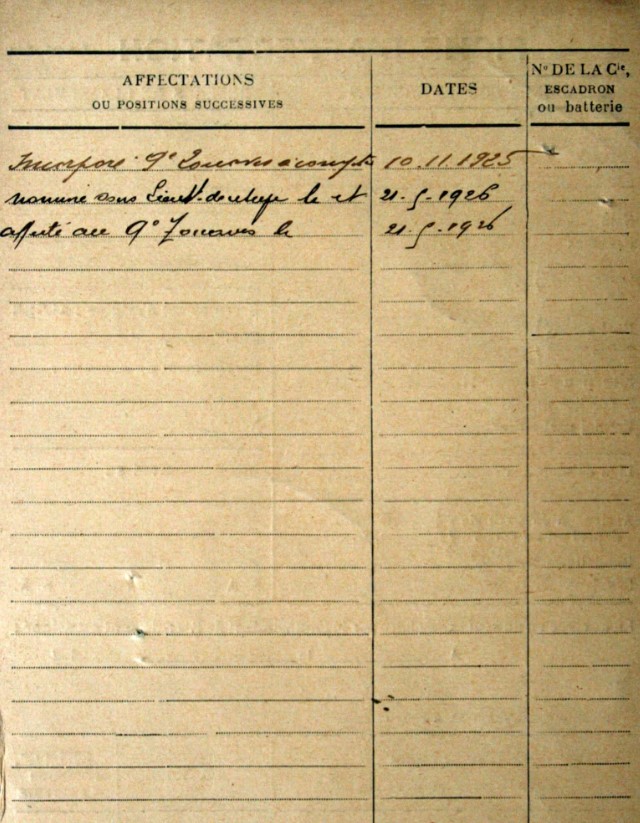 AFFECTATIONS
OU POSITIONS SUCCESSIVES
DATES
N° DE LA Cie,
ESCADRON
ou batterie
Incorporé 9e Zouaves à compter 10.11.1925
nommé sous Lieut. de le et 21-5-1926
affecté au 9e Zouaves le 21-5-1926